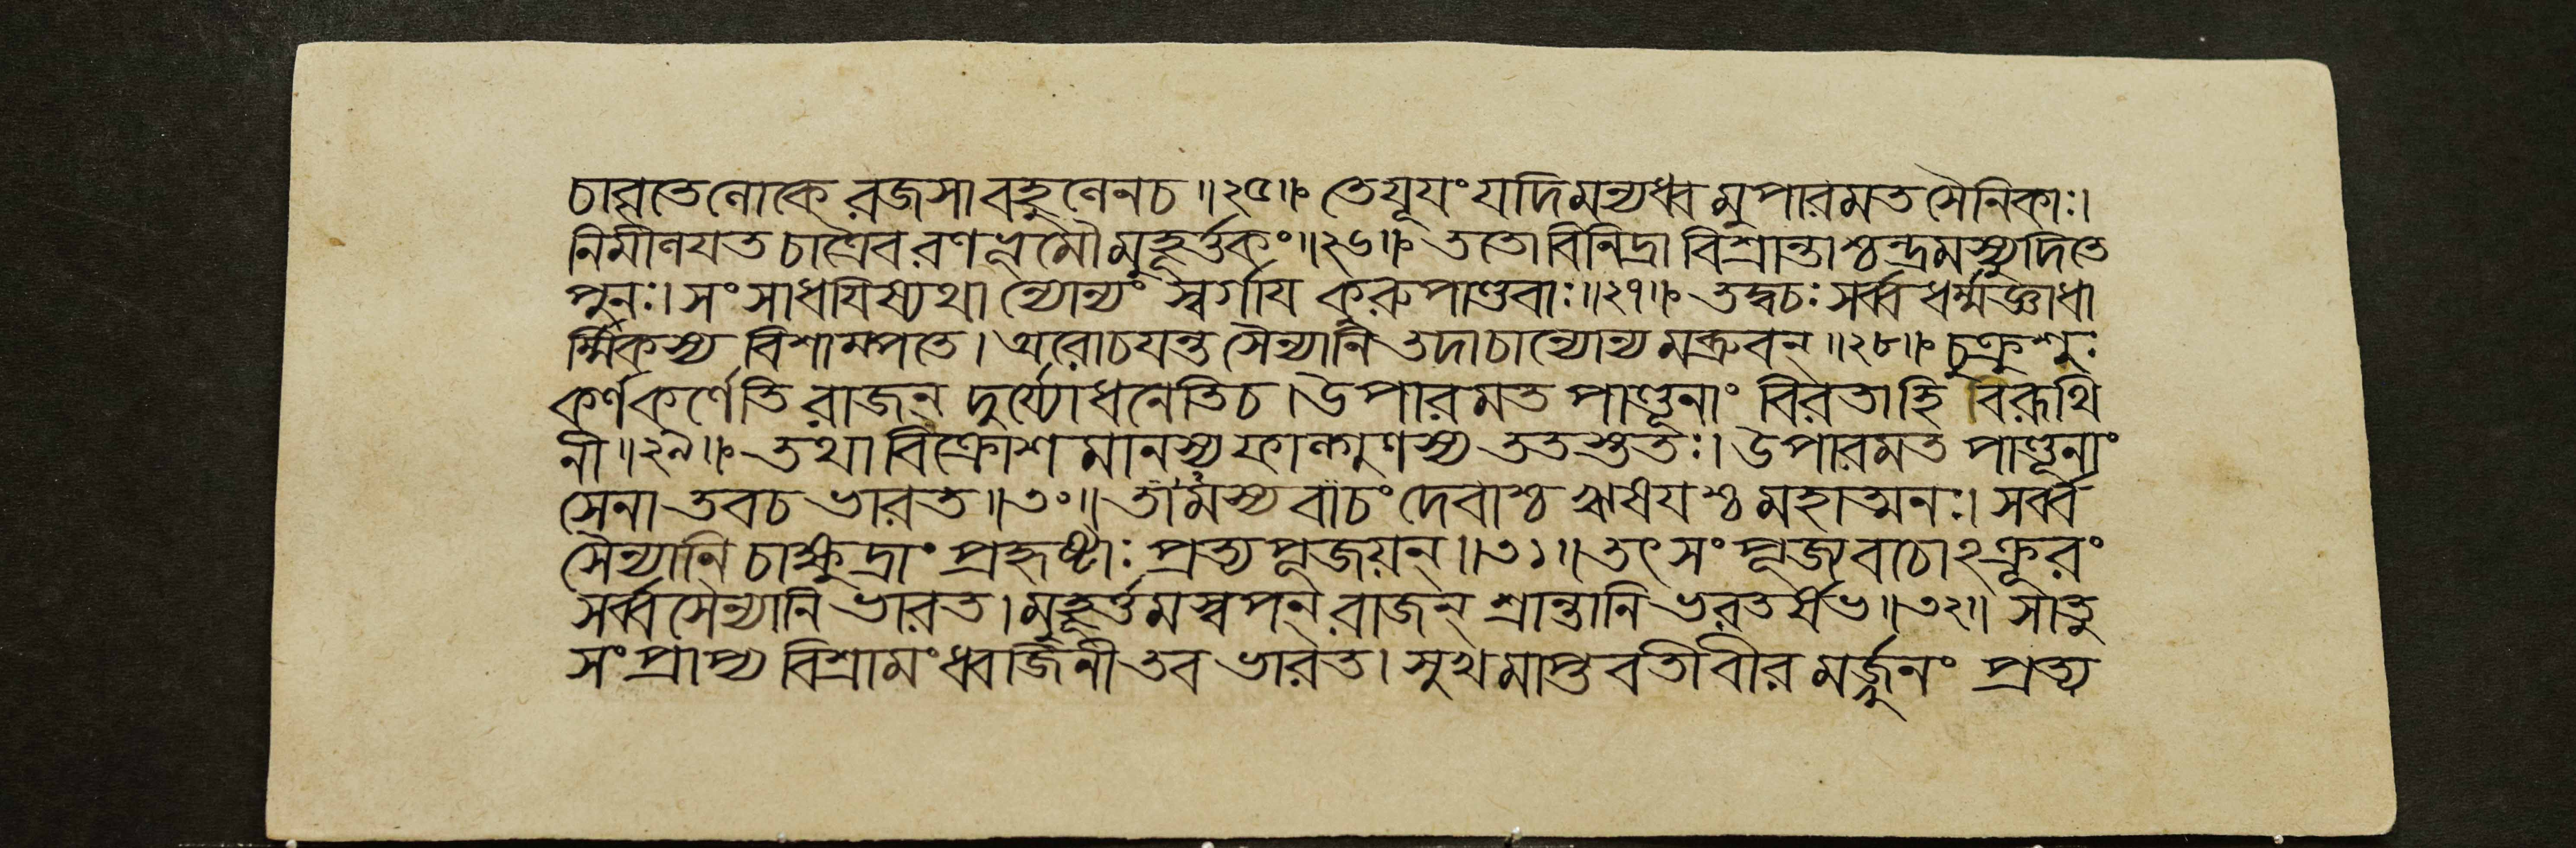 চাবৃতেলোকে রজসাবহুলেনচ॥২৫॥ঃ তেযূযংযদিমন্যধ্ব মুপারমত সৈনিকাঃ।
নিমীলযত চাত্রৈব রণভূমৌ মুহূর্ত্তকং॥২৬॥ঃ ততোবিনিদ্রা বিশ্রান্তাশ্চন্দ্রমস্যুদিতে
পুনঃ। সংসাধযিষ্যথা ন্যোন্যং স্বর্গায কুরুপাণ্ডবাঃ॥২৭॥ঃ তদ্বচঃ সর্ব্বধর্ম্মজ্ঞাধা
র্ম্মিকস্য বিশাম্পতে। অরোচযন্ত সৈন্যানি তদাচান্যোন্য মব্রুবন্॥২৮॥ঃ চুক্রুশুঃ
কর্ণকর্ণেতি রাজন্ দুর্য্যোধনেতিচ। উপারমত পাণ্ডূনাং বিরতাহি বিরূথি
নী॥২৯॥ঃ তথাবিক্রোশমানস্য ফাল্গুণস্য ততস্ততঃ। উপারমত পাণ্ডূনাং
সেনা তবচ ভারত॥৩০॥ তামস্য বাচং দেবাশ্চ ঋষযশ্চ মহাত্মনঃ। সর্ব্ব
সৈন্যানি চাক্ষুদ্রাং প্রহৃষ্টাঃ প্রত্যপূজয়ন্॥৩১॥ তৎ সংপূজ্যবচোঽক্রূরং
সর্ব্বসৈন্যানি ভারত। মুহূর্ত্তমস্বপন্ রাজন্ শ্রান্তানি ভরতর্ষভ॥৩২॥ সাতু
সংপ্রাপ্য বিশ্রামং ধ্বজিনী তব ভারত। সুখমাপ্তবতীবীর মর্জ্জুনং প্রত্য